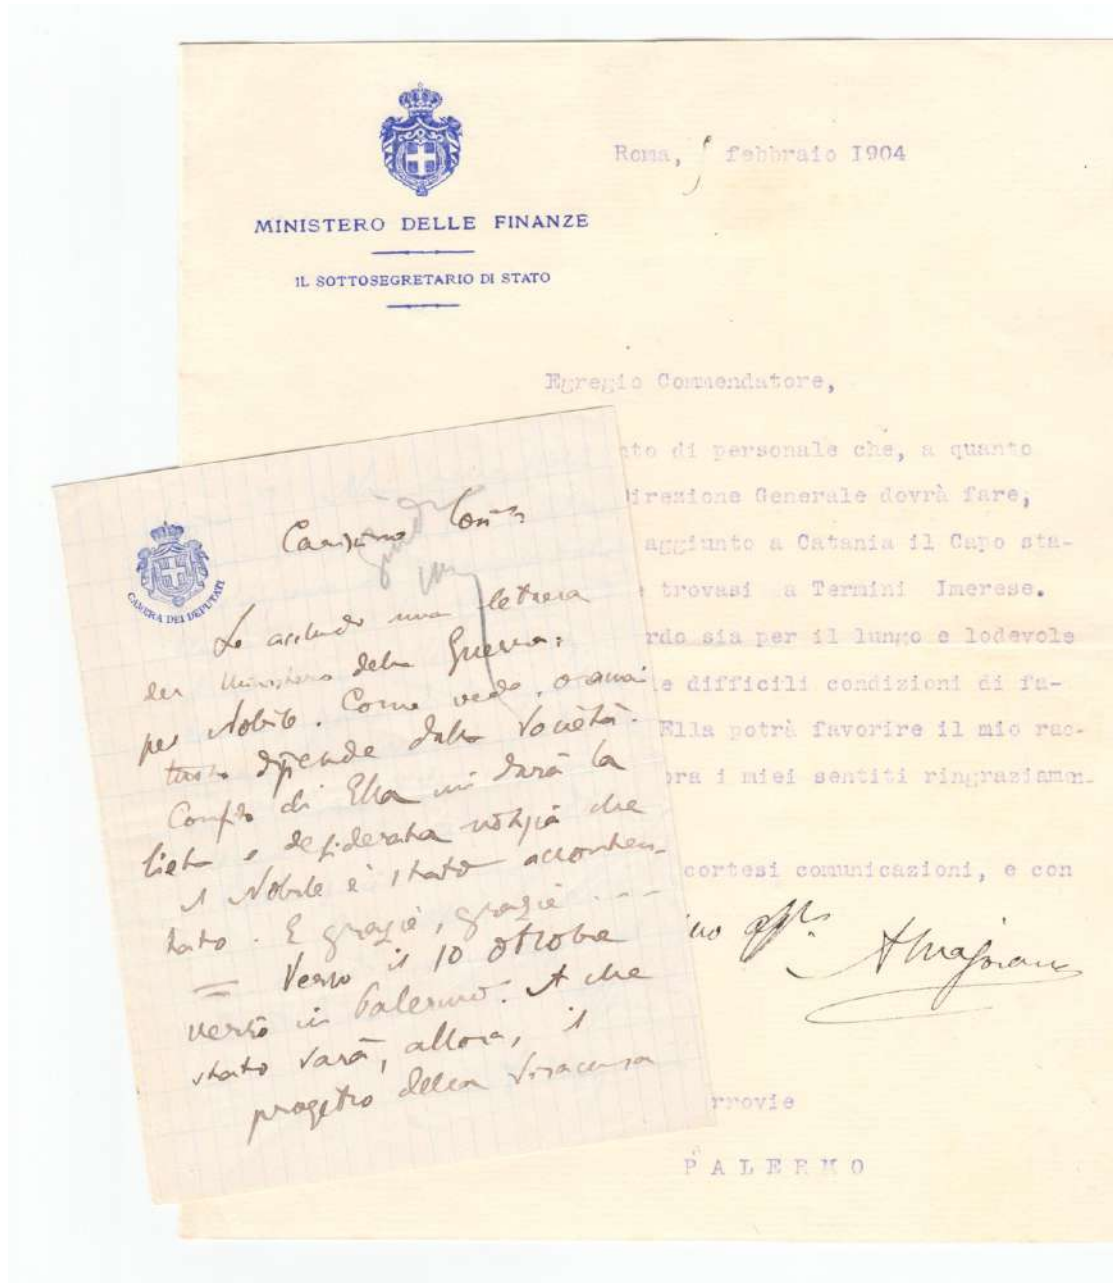 Roma, 5 febbraio 1904
MINISTERO DELLE FINANZE
IL SOTTOSEGRETARIO DI STATO
Egregio Commendatore,
nto di personale che, a quanto
Direzione Generale dovrà fare,
aggiunto a Catania il Capo sta-
trovasi a Termini Imerese.
rdo sia per il lungo e lodevole
le difficili condizioni di fa-
Ella potrà favorire il mio rac-
ora i miei sentiti ringraziamen-
cortesi comunicazioni, e con
AMajorana
rrovie
PALERMO
CAMERA DEI DEPUTATI
Carissimo
Le accludo una lettera
del Ministero della Guerra,
per Nobile. Come vede, oramai
tutto dipende dalla Società.
Confido di Ella mi darà la
lieta e desiderata notizia che
il Nobile è stato acconten-
tato. E grazie, grazie ----
= Verso il 10 ottobre
verrò in Palermo. A che
stato sarà, allora, il
progetto della Siracusa